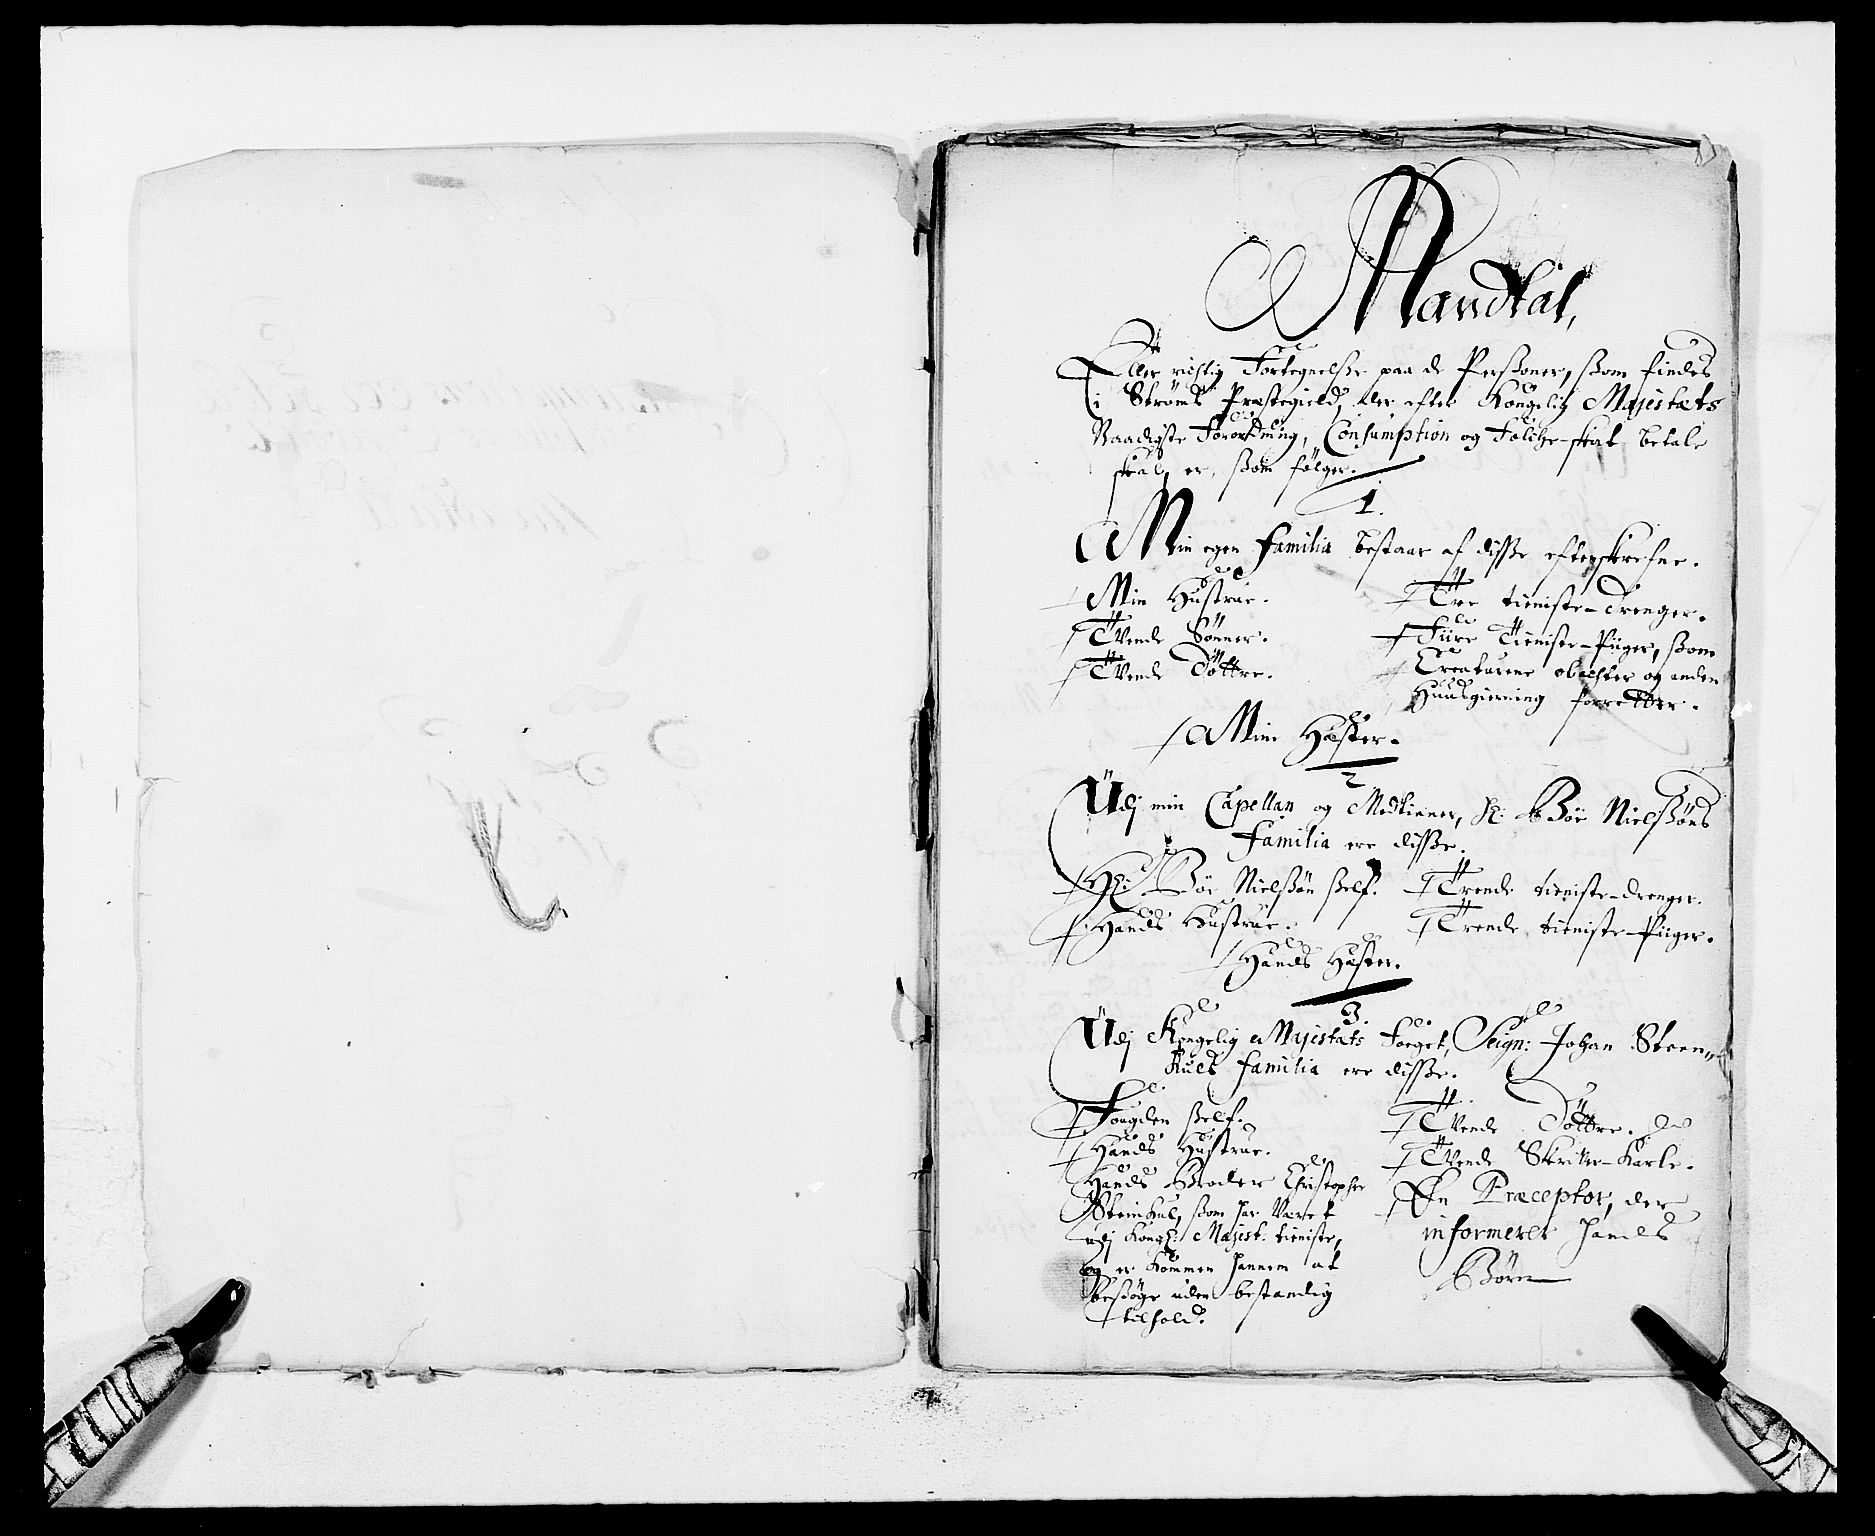 Mandtal,
Eller richtig Fortegnelsse paa de Perssoner, ssom findes
i Strøms Præstegield, der efter Kongelig Majestæts
Naadigste Forordning, Consumption og Folche-skat betale
skal, er, ssom følger.
1.
Min egen Familia bestaar af disse efterskrefne.
Min Hustrue.
Tvende Sønner.
Tvende Døttre.
Tre tieniste-Drenger.
Fiire Tieniste-Piiger, ssom
Creaturene obachter og anden
Huusgierning forretter.
Min Hæster.
2
Udj min Capellan og Medtienner, Hr: Boe Nielssøns
Familia ere disse.
Hr: Boe Nielssøn sself.
Hands Hustrue.
Trende tieniste-drenger.
Trende tieniste-Piiger.
Hands Hæster.
3.
Udj Kongelig Majestæts Foeget, Seign: Johan Steen-
Kuls familia ere disse.
Fougden sself.
Hands Hustrue.
Hands Broder Christopher
Steinkul, ssom har Været
udj Kongl: Majest: tieniste,
og er kommen hannem at
bessøge uden bestandig
tilhold.
Tvende Døttre.
Tvende Skriver-Karle.
En Præceptor, der
informerer hands
Børn